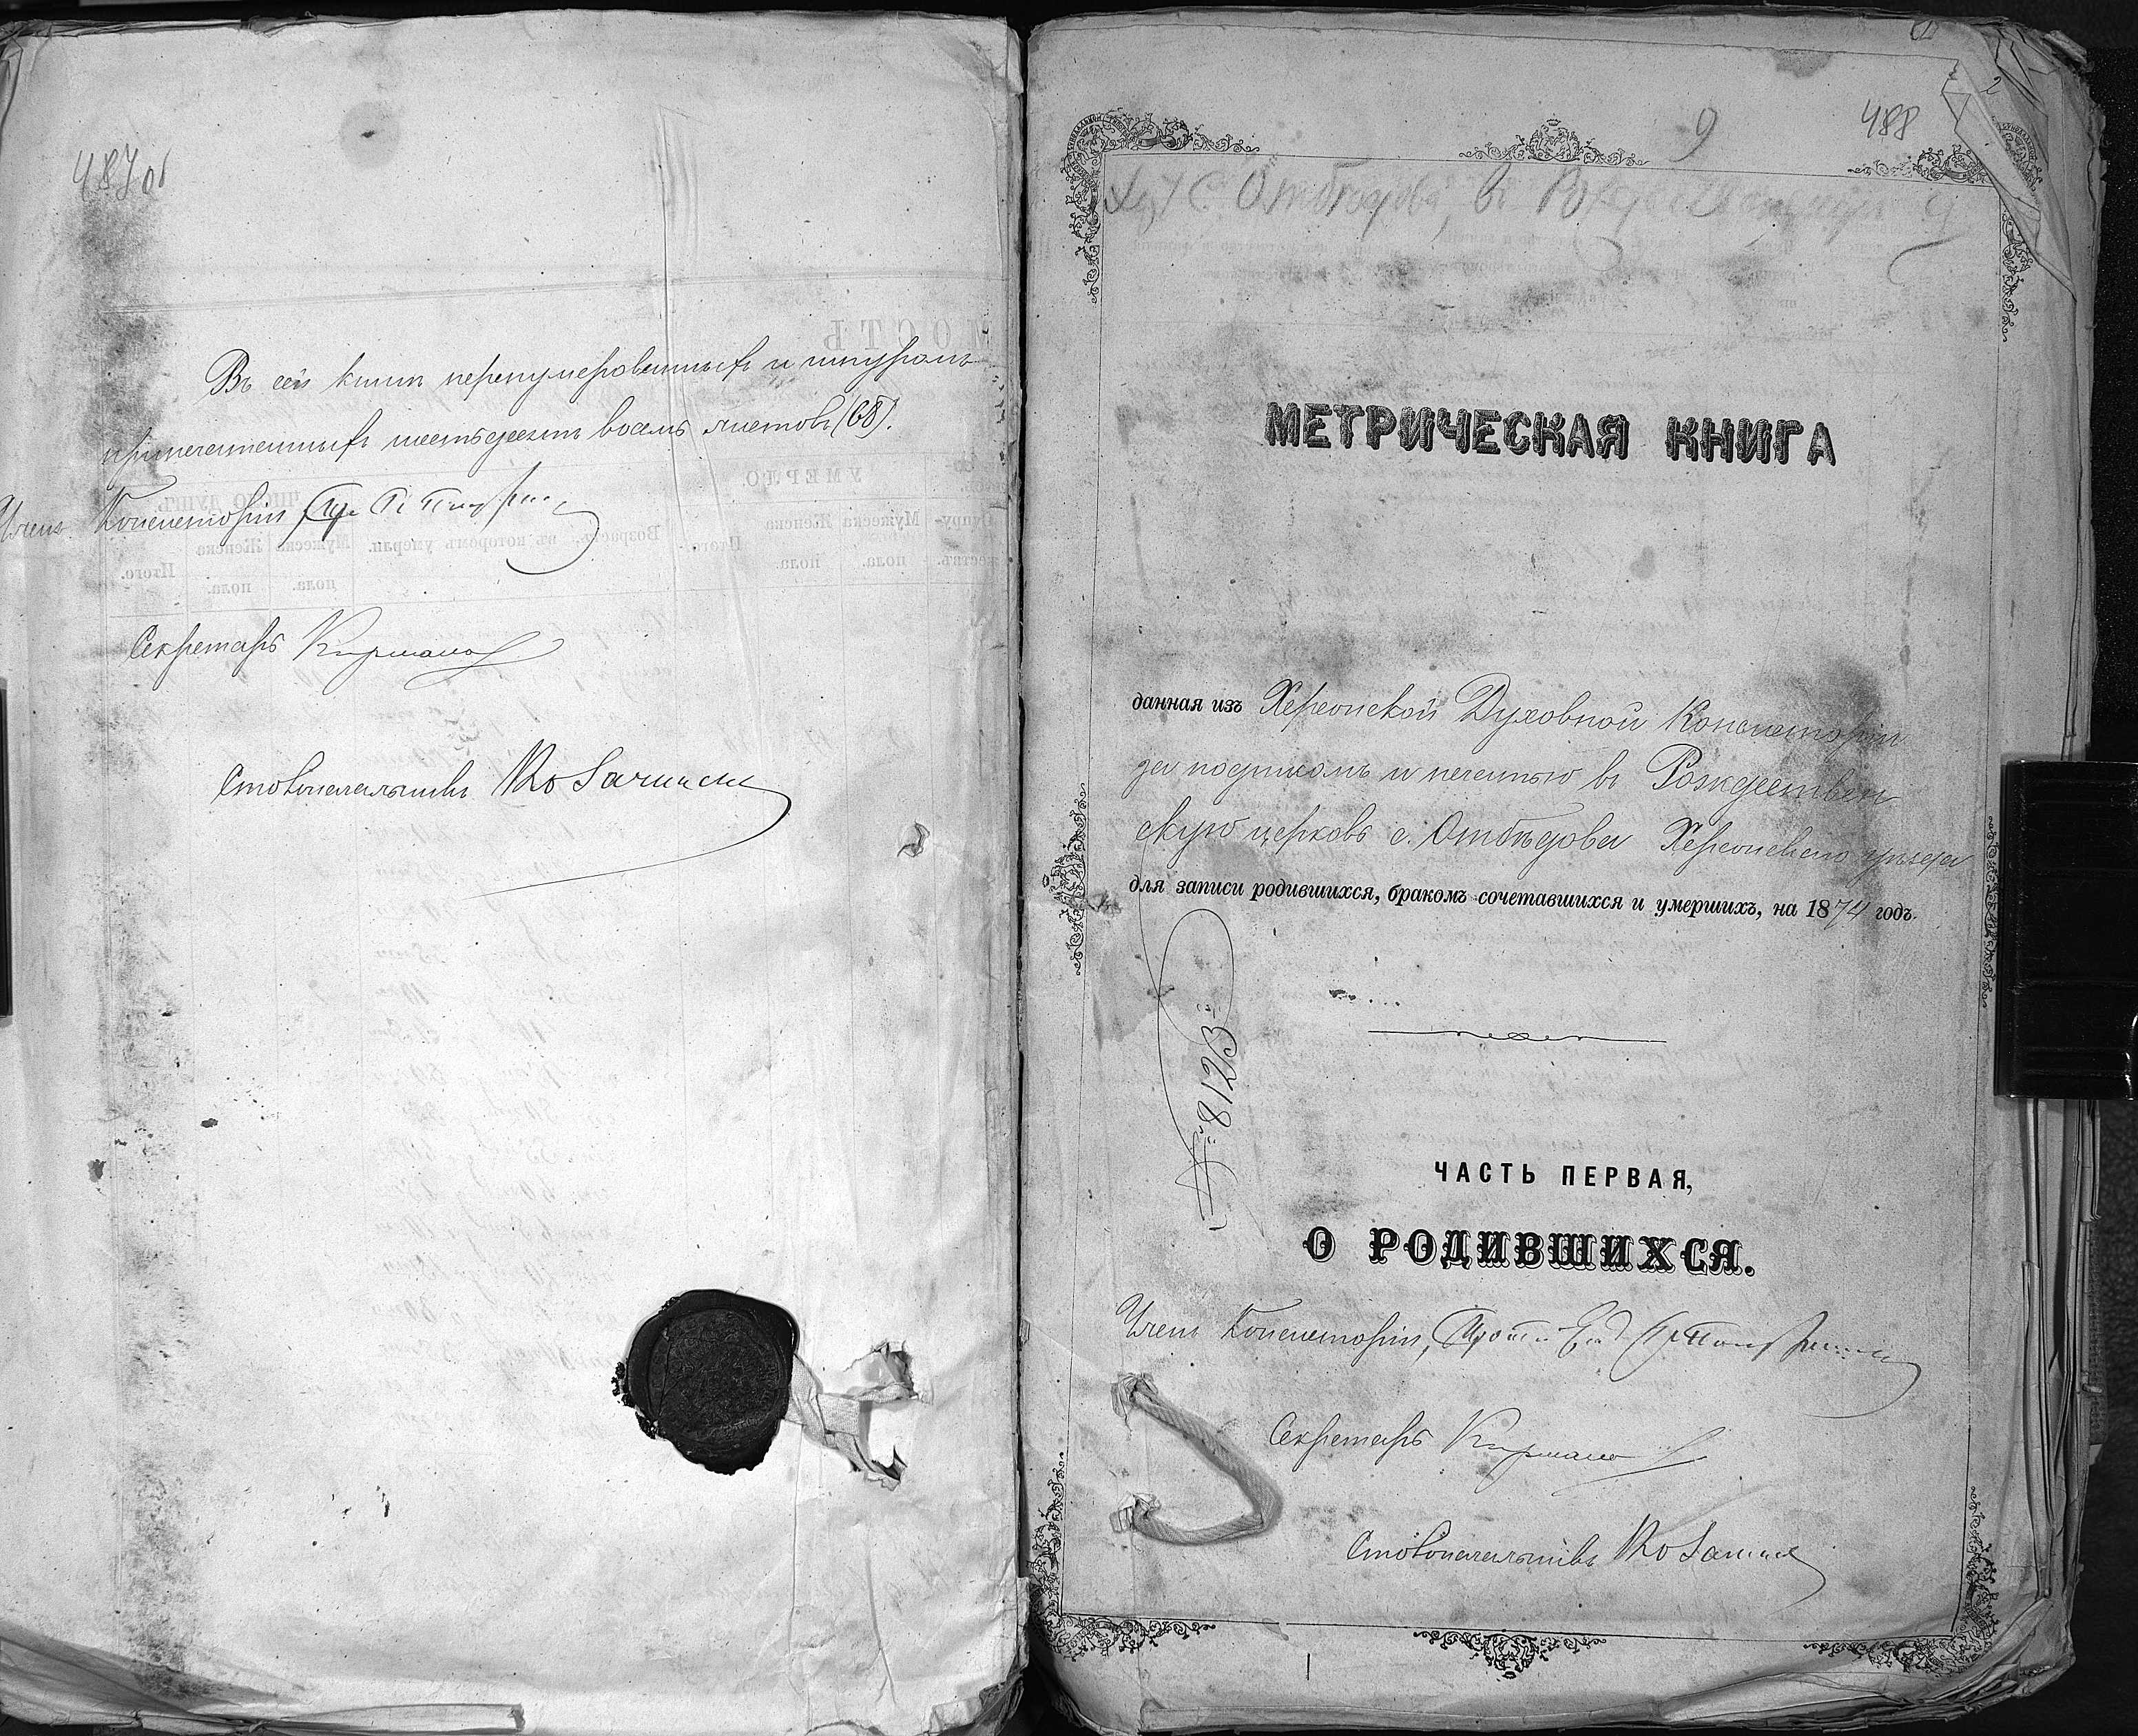 487 об
Въ сей книгѣ перенумерованныхъ и шнуромъ
припечатанныхъ шестьдесятъ восемь листовъ (68).
Членъ Консисторіи
Секретарь
Столоначальникъ
9
488
2
с. Отбѣдова, въ
МЕТРИЧЕСКАЯ КНИГА
данная изъ Херсонской Духовной Консисторіи
за подписомъ и печатью въ Рождествен
скую церковь с. Отбѣдова Херсонскаго уѣзда
для записи родившихся, бракомъ сочетавшихся и умершихъ, на 1874 годъ.
№ 8123
ЧАСТЬ ПЕРВАЯ,
О РОДИВШИХСЯ.
Членъ Консисторіи,
Секретарь
Столоначальникъ